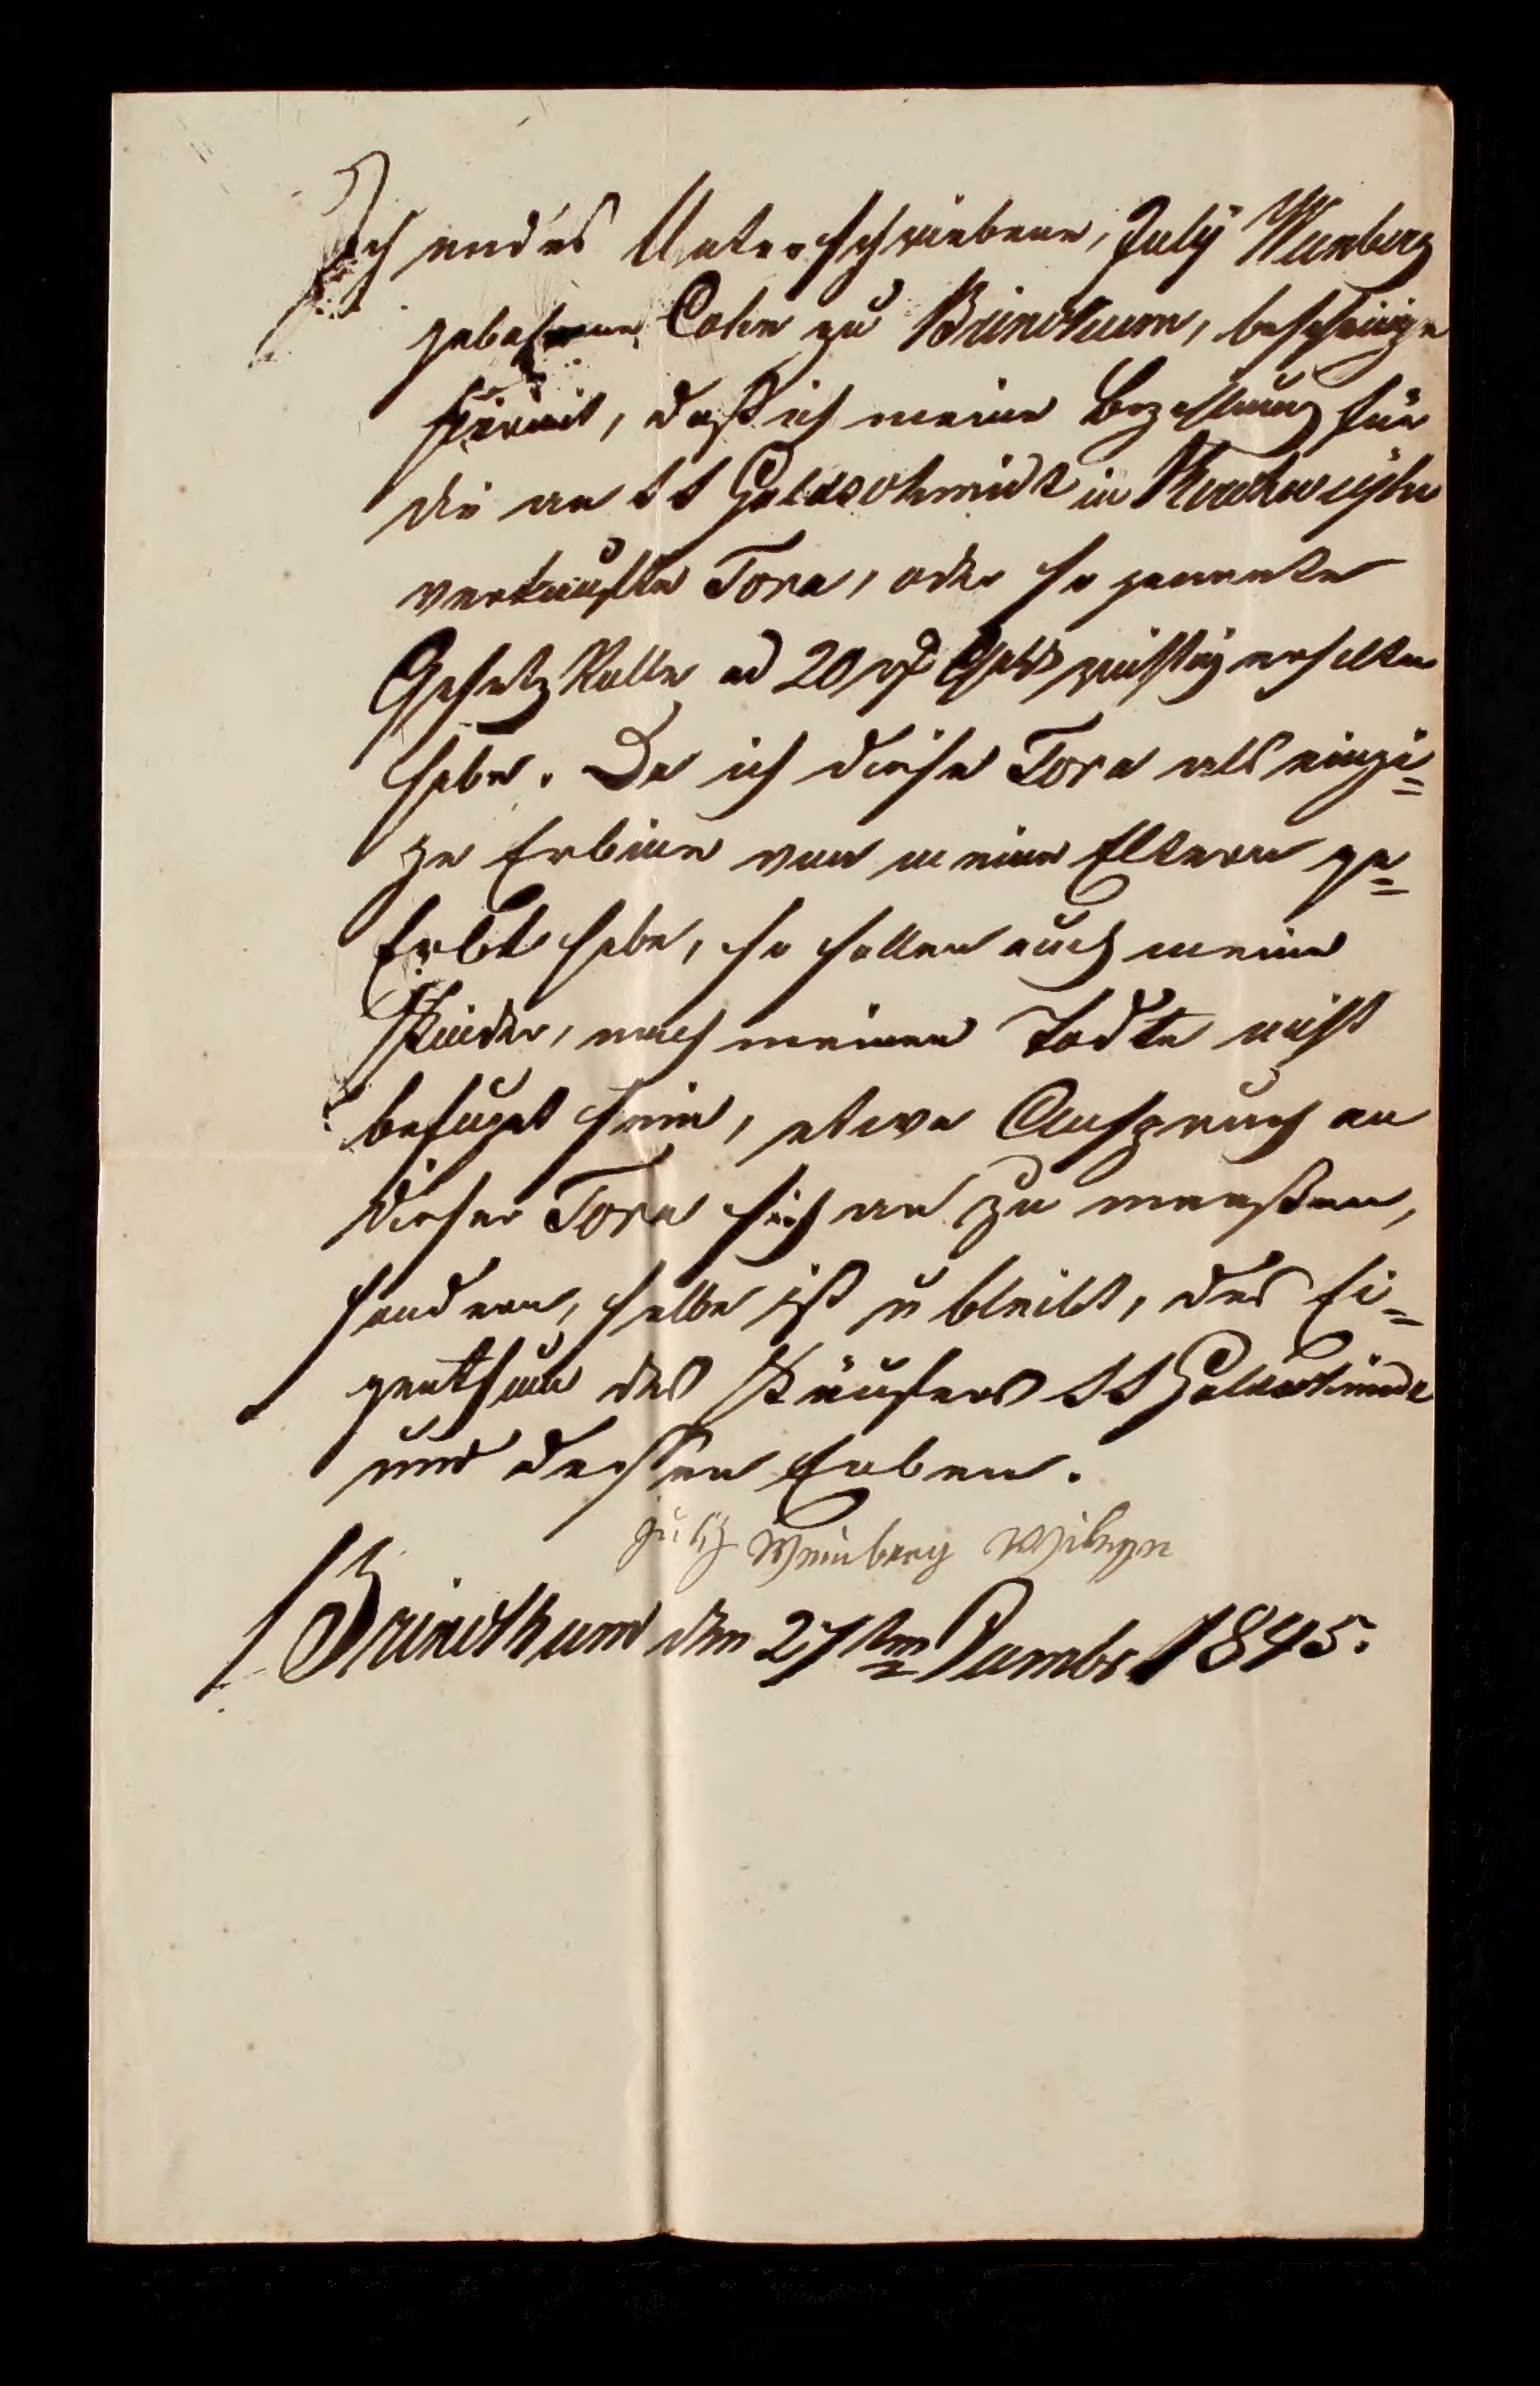 Ich endes Unterschriebene, July Weinberg
gebohrene Cohn zu Brinckum, bescheinige
hiermit, daß ich meine Bezahlung für
die an S S Goldschmidt in
verkaufte Tora, oder so genante
Gesetz Rolle ad 20 rf Gold richtig erhalten
habe. Da ich diese Tora als einzi=
ge Erbinn von meine Eltern ge=
Erbt habe, so sollen auch meine
Kinder, nach meinen Todte nicht
befugt sein, etwa Anspruch an
dieser Tora sich an zu maaßen,
sondern, selbe ist u bleibt, das Ei=
genthum des Käufers S S Goldschmidt
und dessen Erben.
July Weinberg Witwe
Brinckum den 27ten 1845.